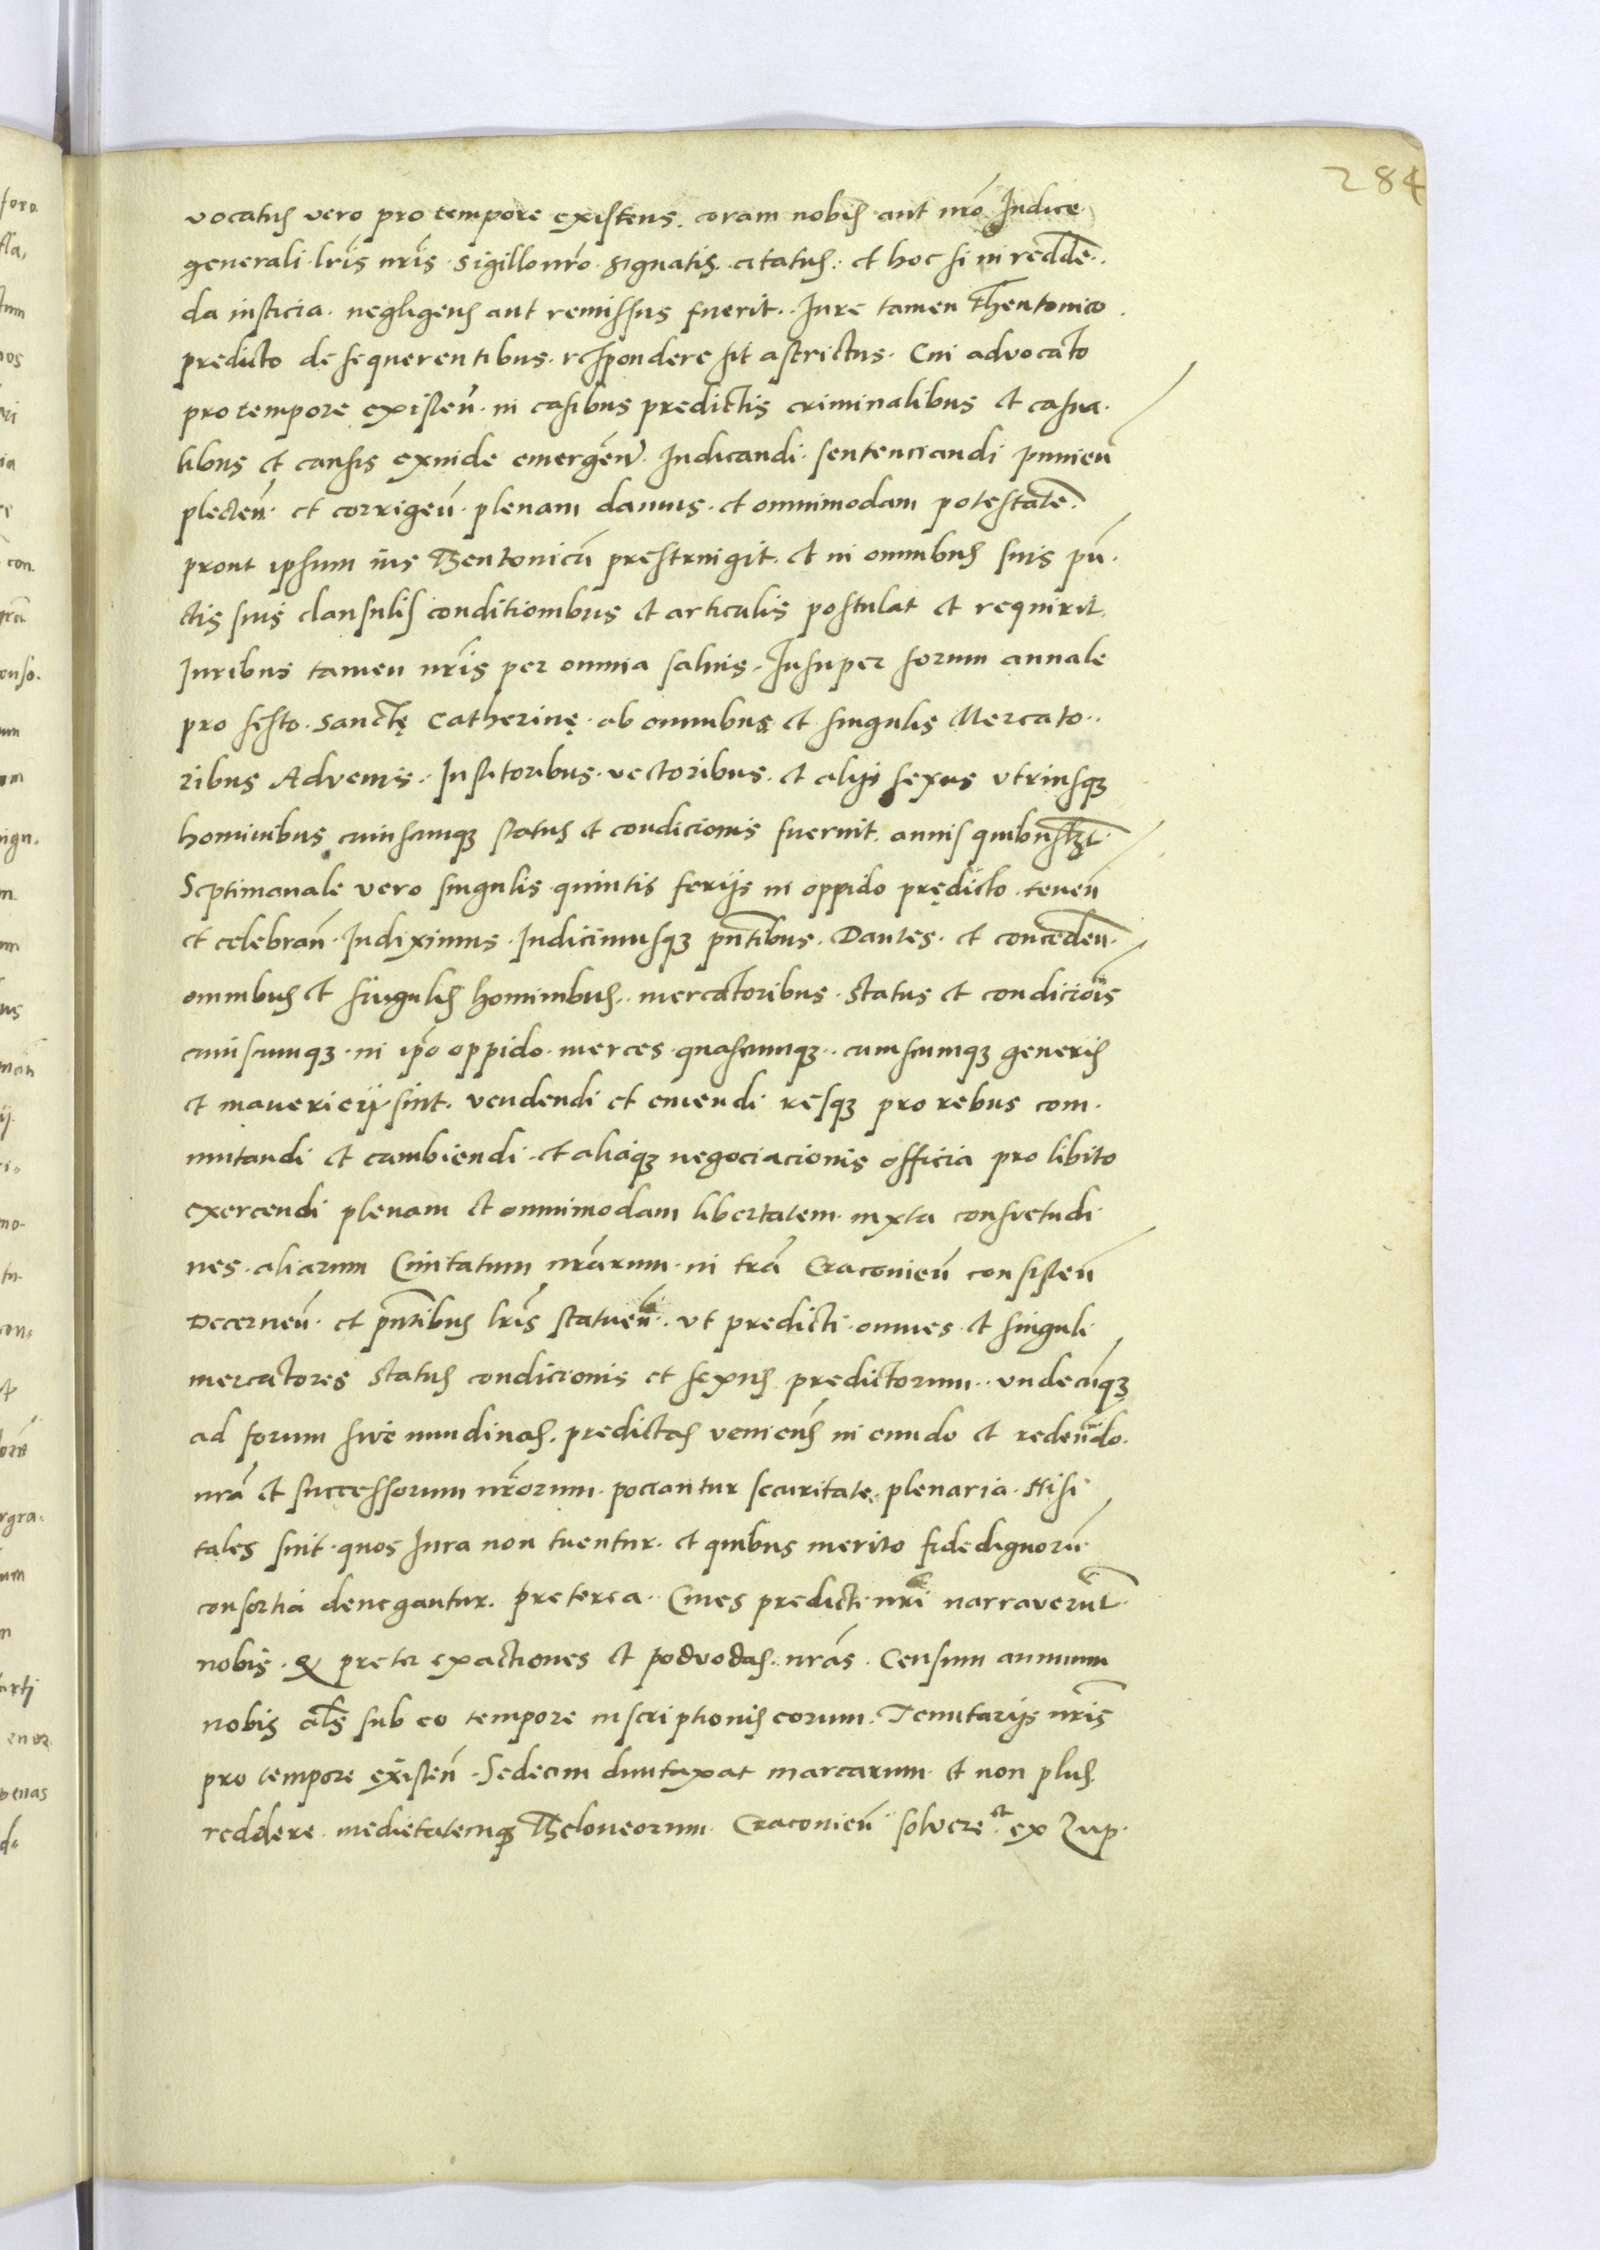 284
vocatus vero pro tempore existens. coram nobis aut nr̃o Iudice
generali lr̃is nr̃is sigillo nr̃o signatis. citatus. et hoc si in reddẽ.
da iusticia. negligens aut remissus fuerit. Iure tamen Theutonico.
predicto de se querentibus. respondere sit astrictus. Cui advocato
pro tempore existeñ. in casibus predictis criminalibus et casua.
libus et causis exinde emergeñ. Iudicandi. sentenciandi punieñ
plecteñ. et corrigeñ. plenam damus. et omnimodam potestatẽ.
prout ipsum ius Theutonicũ prestringit. et in omnibus suis pũ.
ctis suis clausulis conditionibus et articulis postulat et requirit.
Iuribus tamen nr̃is per omnia salvis. Insuper forum annale
pro festo. Sanctę Catherinę. ab omnibus et singulis Mercato..
ribus Advenis. Institoribus. vectoribus. et alijs sexus utriusqꝫ
hominibus cuiuscumqꝫ status et condicionis fuerint. annis quibusłꝫt.
Septimanale vero singulis quintis ferijs in oppido prędicto. teneñ
et celebrañ. Indiximus. Indicimusqꝫ pñtibus. Dantes. et concedeñ.
omnibus et singulis hominibus. mercatoribus. status et condiciõis
cuiuscumqꝫ. in ip̃o oppido. merces. quascumqꝫ. cuiuscumqꝫ generis
et maneriei sint. vendendi et emendi resqꝫ pro rebus com.
mutandi et cambiendi. et aliaqꝫ negociacionis officia pro libito
exercendi plenam et omnimodam libertatem. iuxta consvetudi
nes. aliarum Civitatum nr̃arum. in tr̃a Cracovieñ consisteñ
Decerneñ. et pñtibus lr̃is statueñ. ut predicti. omnes. et singuli
mercatores status condicionis et sexus predictorum. undecũqꝫ
ad forum sive nundinas. predictas veniens in eundo et redeũdo.
nr̃a et successorum nr̃orum. pociantur securitate. plenaria. Nisi
tales sint. quos Iura non tuentur. et quibus merito fidedignorũ
consortia denegantur. preterea. Cives predicti nr̃i narraverũt
nobis. qꝫ preter exactiones et podvodas. nr̃as. Censum annuum
nobis als̃ sub eo tempore inscriptionis eorum. Tenutarijs nr̃is
pro tempore existeñ. Sedecim duntaxat marcarum. et non plus.
reddere. medietatemqꝫ Theloneorum. Cracovieñ solvere et ex Zup.